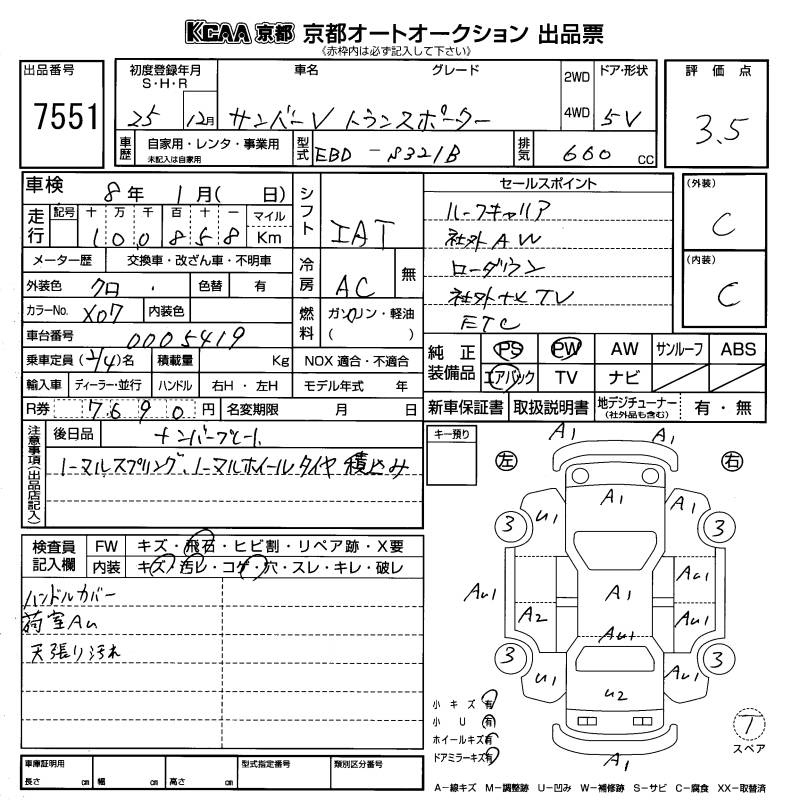 KCAA 京都 京都オートオークション 出品票
《赤枠内は必ず記入して下さい》
出品番号
7551
初度登録年月
S・H・R
車名
グレード
2WD
4WD
ドア・形状
25 12月 サンバーV トランスポーター 5V
評価点
3.5
車歴
自家用・レンタ・事業用
未記入は自家用
型式
EBD-S321B
排気
660 CC
車検
8年 1月( 日)
走行
記号 十 万 千 百 十 一 マイル
100858 Km
メーター歴
交換車・改ざん車・不明車
外装色
クロ
色替
有
カラーNo.
X07
内装色
車台番号
0005419
乗車定員
(2/4)名
積載量
Kg
輸入車
ディーラー・並行
ハンドル
右H・左H
R券
7690円
名変期限
月 日
シフト
IAT
冷房
AC
無
燃料
ガソリン・軽油
( )
NOX 適合・不適合
モデル年式 年
セールスポイント
ルーフキャリア
社外AW
ローダウン
社外ナビTV
ETC
(外装)
C
(内装)
C
純正装備品
PS
PW
AW
サンルーフ
ABS
エアバック
TV
ナビ
新車保証書
取扱説明書
地デジチューナー
(社外品も含む)
有・無
注意事項(出品店記入)
後日品
ナンバープレート
ノーマルスプリング、ノーマルホイールタイヤ 積込み
キー預り
検査員記入欄
FW
キズ・飛石・ヒビ割・リペア跡・X要
内装
キズ・汚レ・コゲ・穴・スレ・キレ・破レ
ハンドルカバー
荷室AU
天張り汚れ
左
右
A1
A1
3
U1
A1
A1
3
AU1
A2
A1
AU1
AU1
AU1
3
U1
U2
AU1
3
A1
小キズ 有
小U 有
ホイールキズ 有
ドアミラーキズ 有
T
スペア
車庫証明用
長さ cm
幅 cm
高さ cm
型式指定番号
類別区分番号
A−線キズ M−調整跡 U−凹み W−補修跡 S−サビ C−腐食 XX−取替済